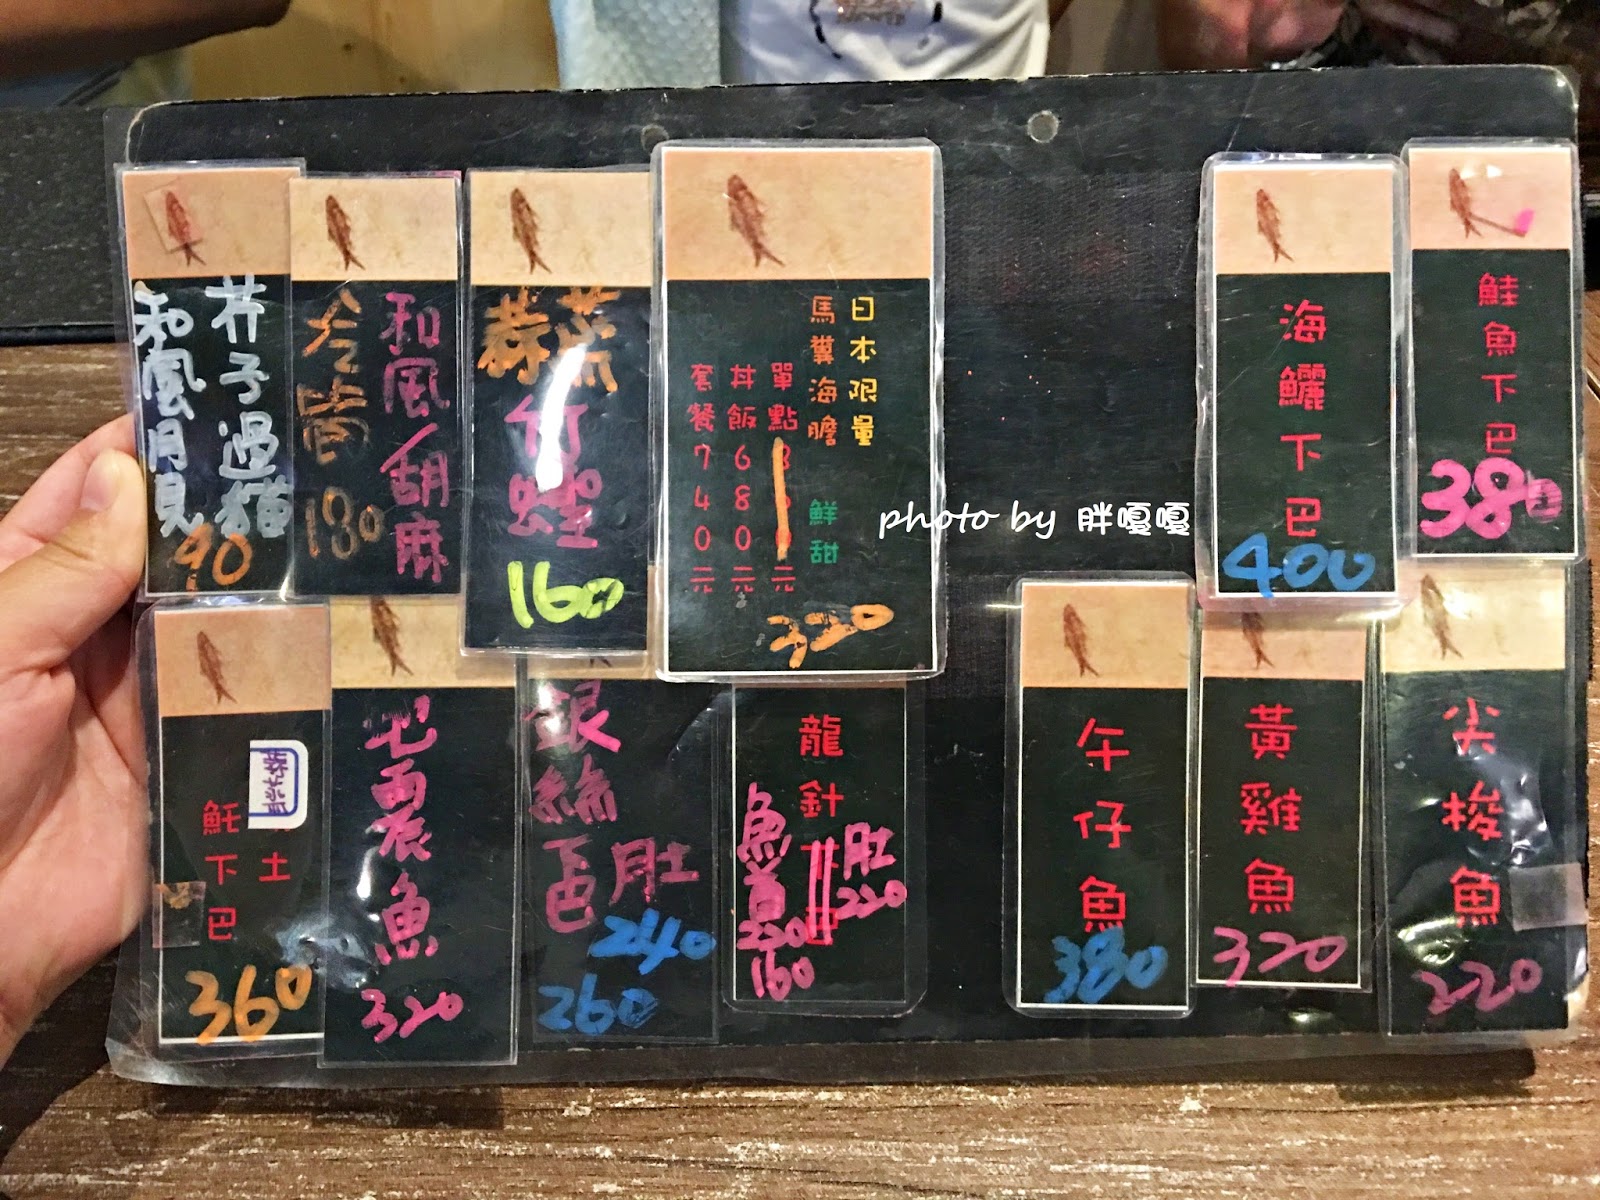 芥子過貓
和風月見
90
和風胡麻
冷筍
180
蒜蓉
竹蟶
160
日本限量
馬糞海膽 鮮甜
單點 元
丼飯680元
套餐740元
320
海鱺下巴
400
鮭魚下巴
380
photo by 胖嘎嘎
土
魠下巴
360
魚
320
銀絲
下巴 肚
240
260
龍針
肚
220
魚
220
160
午仔魚
380
黃雞魚
320
尖梭魚
220